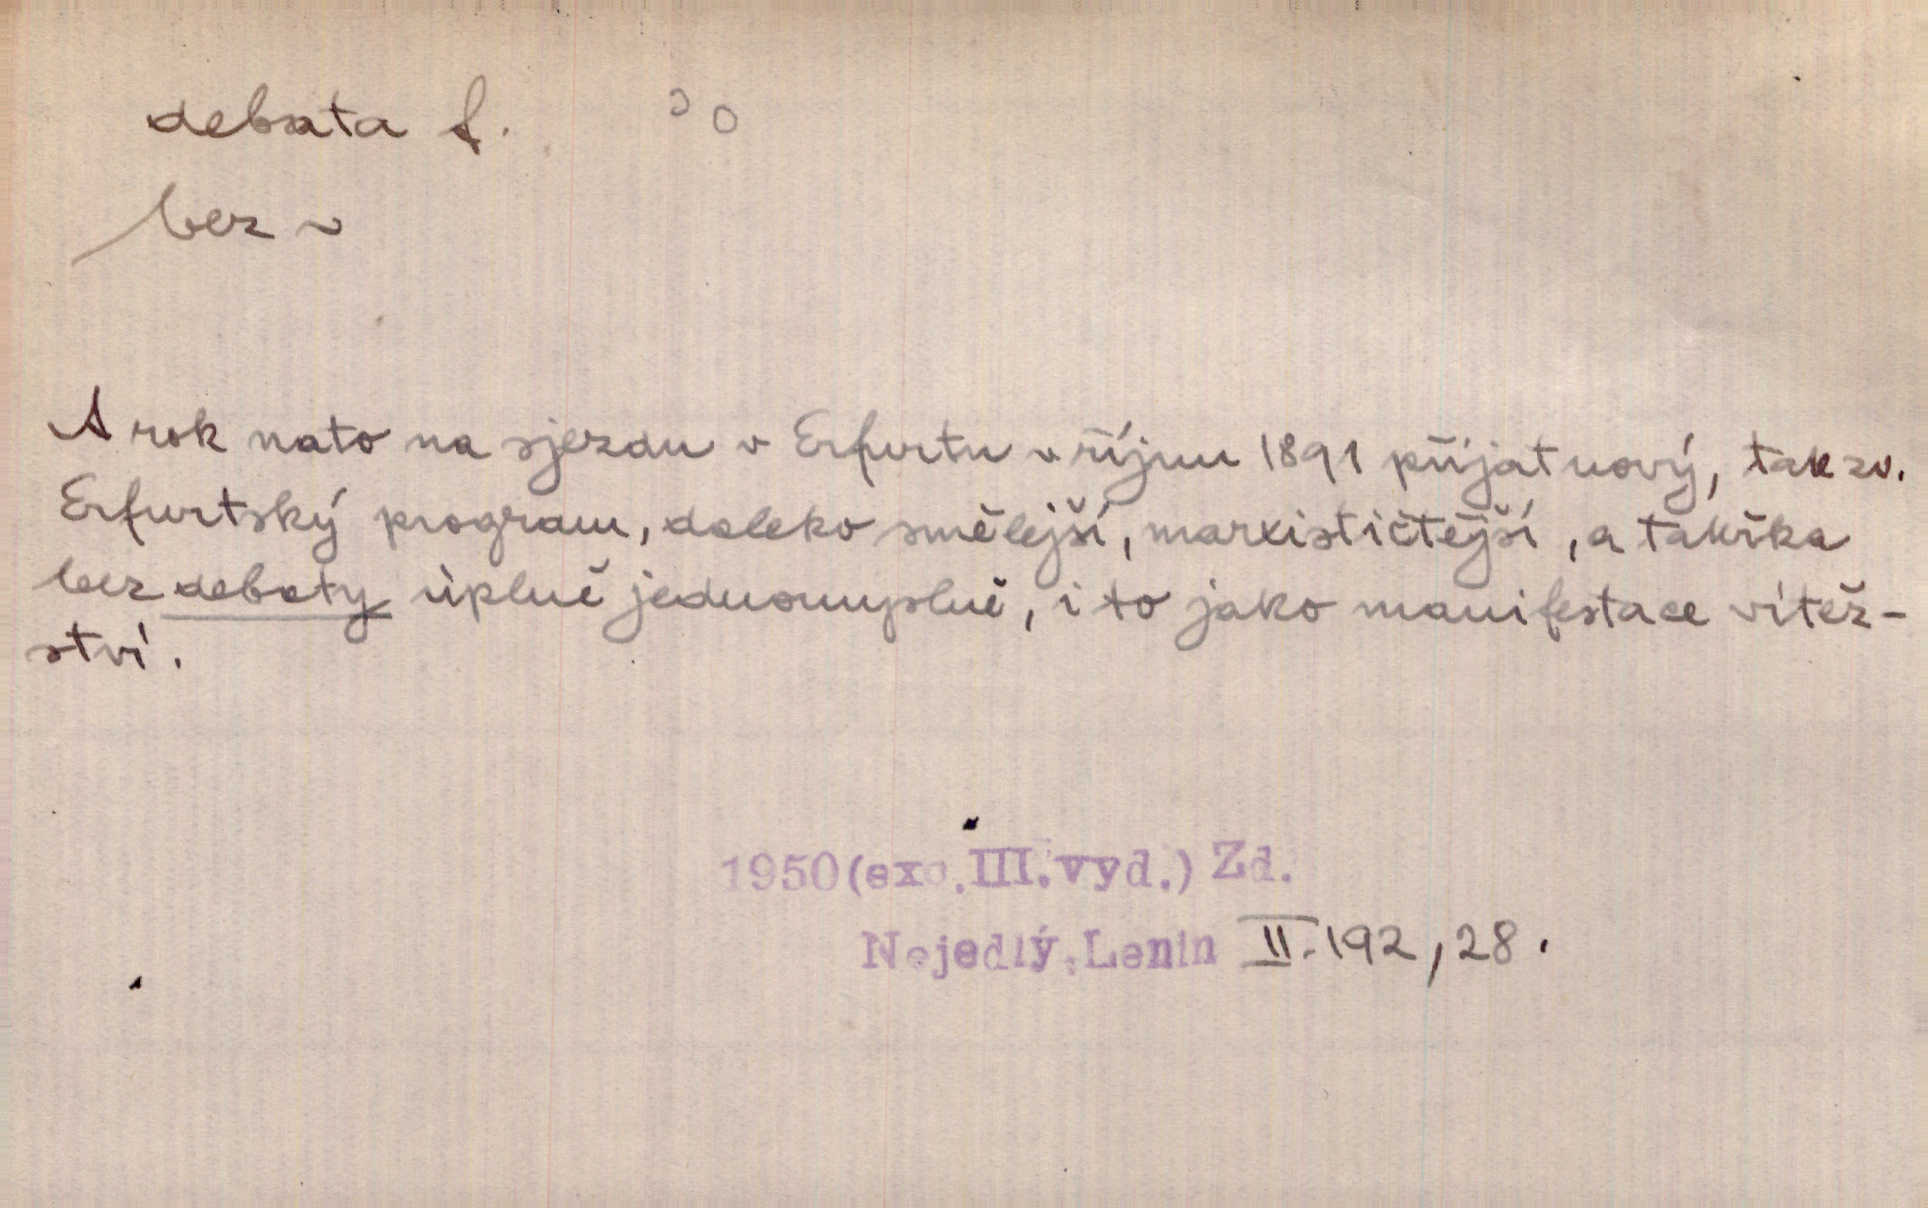 debata f.
bez ~
A rok nato na sjezdu v Erfurtu v říjnu 1891 přijat nový, tak zv.
Erfurtský program, daleko smělejší, marxističtější, a takřka
bez debaty úplně jednomyslně, i to jako manifestace vítěz-
ství.
1950(exc.III.vyd.) Zd.
Nejedlý,Lenin II.192,28.